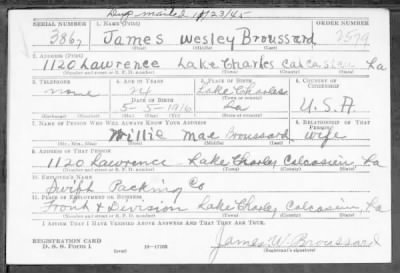 Dup mailed 11/23/45
SERIAL NUMBER 1. NAME (Print) ORDER NUMBER
3867 James Wesley Broussard 2579
(First) (Middle) (Last)
2. ADDRESS (Print)
1120 Lawrence Lake Charles Calcasieu La
(Number and street or R. F. D. number) (Town) (County) (State)
3. TELEPHONE 4. AGE IN YEARS 5. PLACE OF BIRTH 6. COUNTRY OF CITIZENSHIP
none 24 Lake Charles
DATE OF BIRTH (Town or county)
5-5-1916 La U.S.A.
(Mo.) (Day) (Yr.) (State or country)
7. NAME OF PERSON WHO WILL ALWAYS KNOW YOUR ADDRESS 8. RELATIONSHIP OF THAT PERSON
Willie Mae Broussard wife
(Mr., Mrs., Miss) (First) (Middle) (Last)
9. ADDRESS OF THAT PERSON
1120 Lawrence Lake Charles Calcasieu, La
(Number and street or R. F. D. number) (Town) (County) (State)
10. EMPLOYER'S NAME
Swift Packing Co
11. PLACE OF EMPLOYMENT OR BUSINESS
Front & Division Lake Charles Calcasieu, La
(Number and street or R. F. D. number) (Town) (County) (State)
I AFFIRM THAT I HAVE VERIFIED ABOVE ANSWERS AND THAT THEY ARE TRUE.
REGISTRATION CARD
D. S. S. Form 1 (over) 16—17105
James W. Broussard
(Registrant's signature)